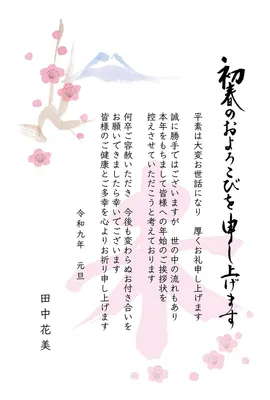 初春のおよろこびを申し上げます
平素は大変お世話になり　厚くお礼申し上げます
誠に勝手ではございますが　世の中の流れもあり
本年をもちまして皆様への年始のご挨拶状を
控えさせていただこうと考えております
何卒ご容赦いただき　今後も変わらぬお付き合いを
お願いできましたら幸いでございます
皆様のご健康とご多幸を心よりお祈り申し上げます
令和九年　元旦
田中花美